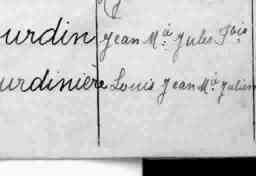 urdin Jean Mie Jules Fois
urdinière Louis Jean Mie Julien